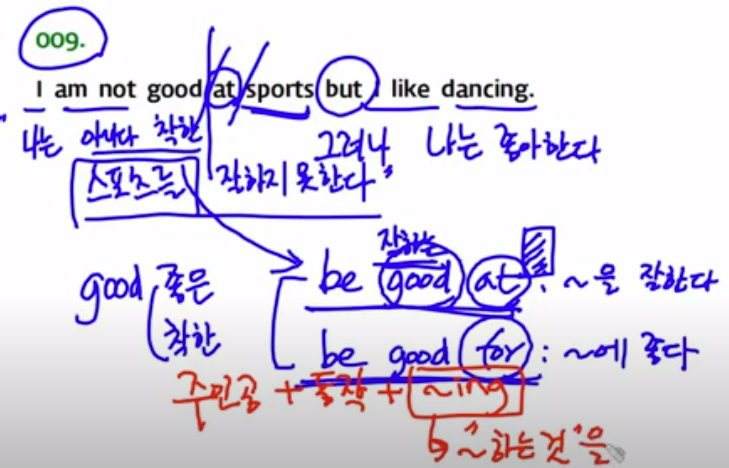 009.
I am not good at sports but I like dancing.
나는 아니다 착한 그러나 나는 좋아한다
스포츠를 잘하지 못한다"
잘하는
good 좋은 be good at : ~을 잘한다
착한 be good for : ~에 좋다
주인공 + 동작 + ~ing
"~하는 것"을